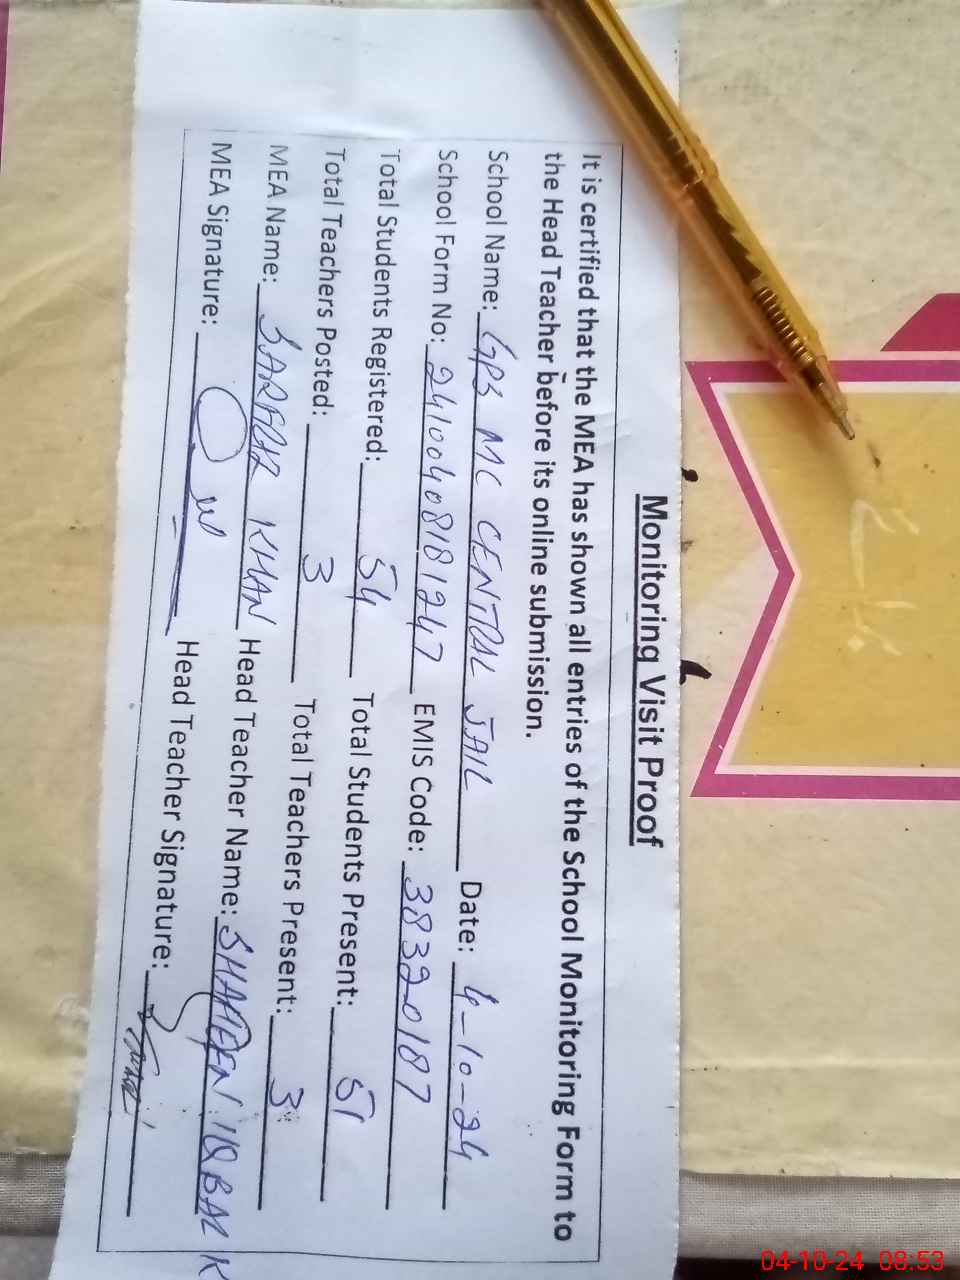 Monitoring Visit Proof
It is certified that the MEA has shown all entries of the School Monitoring Form to
the Head Teacher before its online submission.
School Name: GPS MC CENTRAL JAIL Date: 4-10-24
School Form No: 24100408181247 EMIS Code: 38320187
Total Students Registered: 54 Total Students Present: 51
Total Teachers Posted: 3 Total Teachers Present: 3
MEA Name: SARFRAZ KHAN Head Teacher Name: SHAHEEN IQBAL K
MEA Signature: Head Teacher Signature:
04-10-24 08:53